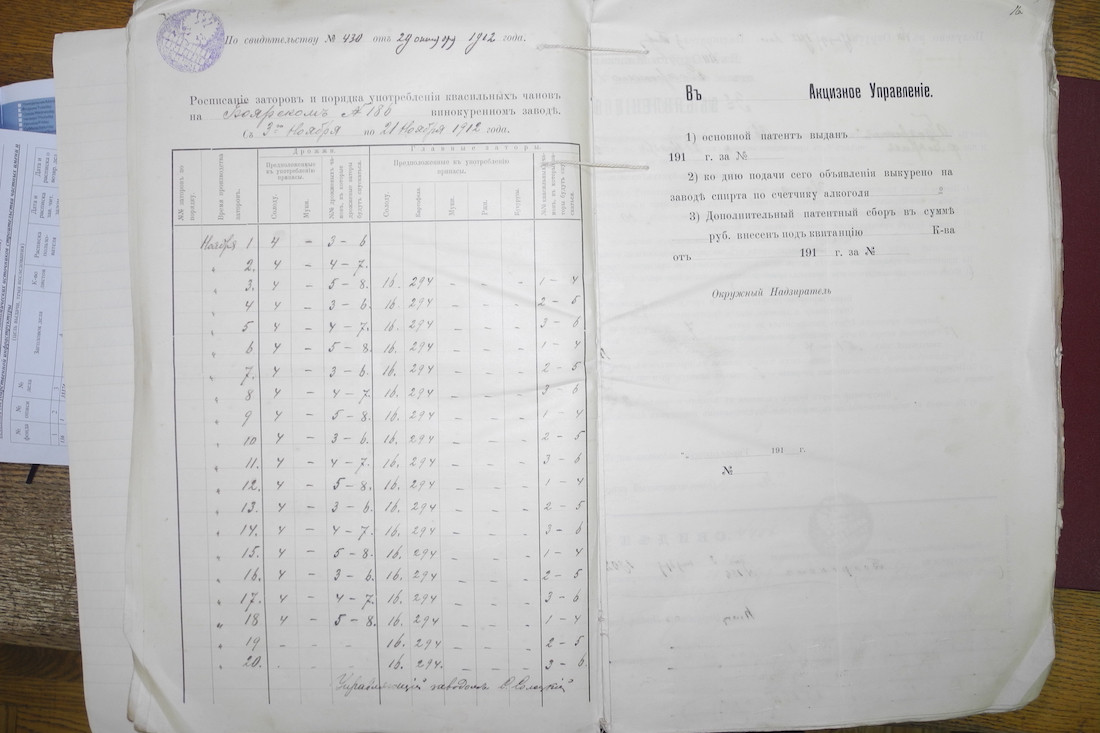 По свидѣтельству № 430 отъ 29 октября 1912 года.
Росписаніе заторовъ и порядка употребленія квасильныхъ чановъ
на Боярскомъ № 186 винокуренномъ заводѣ.
Съ 3го Ноября по 21 Ноября 1912 года.
№№ заторовъ по порядку.
Время производства заторовъ.
Дрожжи.
Предположенные къ употребленію припасы.
Солоду.
Муки.
Главные заторы.
Предположенные къ употребленію припасы.
Солоду.
Картофеля.
Муки.
Ржи.
Кукурузы.
Ноября 1. 4 – 3 – 6
„ 2. 4 – 4 – 7.
„ 3. 4 – 5 – 8. 16. 294 – – – 1 – 4
„ 4 4 – 3 – 6. 16. 294 – – – 2 – 5
„ 5 4 – 4 – 7. 16. 294 – – – 3 – 6
„ 6 4 – 5 – 8. 16. 294 – – – 1 – 4
„ 7. 4 – 3 – 6. 16. 294 – – – 2 – 5
„ 8 4 – 4 – 7. 16. 294 – – – 3 – 6
„ 9 4 – 5 – 8. 16. 294 – – – 1 – 4
„ 10 4 – 3 – 6. 16. 294 – – – 2 – 5
„ 11. 4 – 4 – 7. 16. 294 – – – 3 – 6
„ 12. 4 – 5 – 8. 16. 294 – – – 1 – 4
„ 13. 4 – 3 – 6. 16. 294 – – – 2 – 5
„ 14. 4 – 4 – 7. 16. 294 – – – 3 – 6
„ 15. 4 – 5 – 8. 16. 294 – – – 1 – 4
„ 16. 4 – 3 – 6. 16. 294 – – – 2 – 5
„ 17. 4 – 4 – 7. 16. 294 – – – 3 – 6
„ 18 4 – 5 – 8. 16. 294 – – – 1 – 4
„ 19 – – – 16. 294 – – – 2 – 5
„ 20. – – – 16. 294. – – – 3 – 6.
Управляющій заводомъ
Въ Акцизное Управленіе.
1) основной патентъ выданъ
191 г. за №
2) ко дню подачи сего объявленія выкурено на
заводѣ спирта по счетчику алкоголя °
3) Дополнительный патентный сборъ въ суммѣ
руб. внесенъ подъ квитанцію К-ва
отъ 191 г. за №
Окружный Надзиратель
191 г.
№